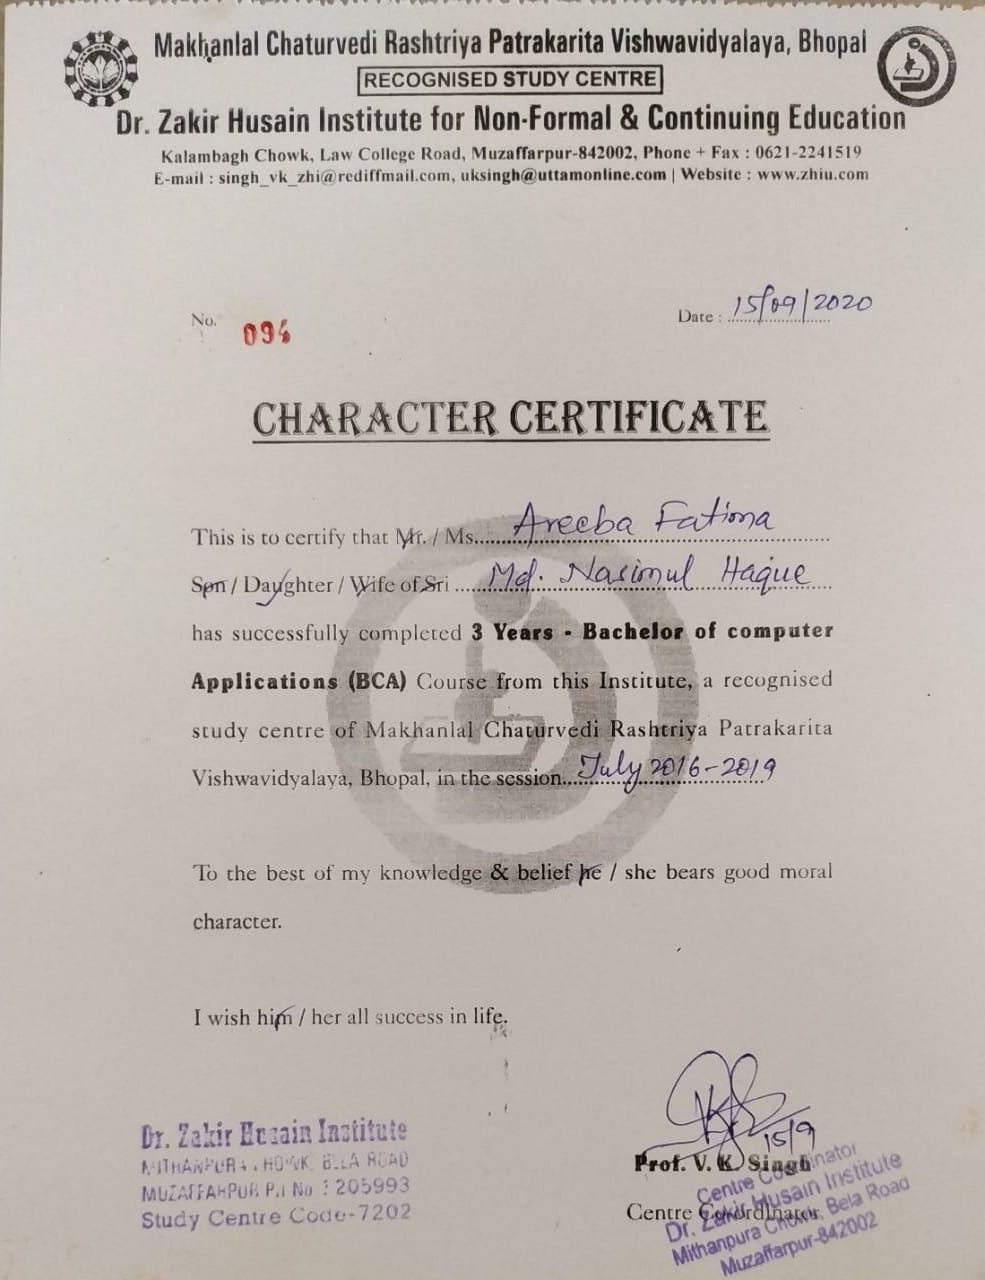 Makhanlal Chaturvedi Rashtriya Patrakarita Vishwavidyalaya, Bhopal
RECOGNISED STUDY CENTRE
Dr. Zakir Husain Institute for Non-Formal & Continuing Education
Kalambagh Chowk, Law College Road, Muzaffarpur-842002, Phone + Fax : 0621-2241519
E-mail : singh_vk_zhi@rediffmail.com, uksingh@uttamonline.com | Website : www.zhiu.com
No. 094
Date : 15/09/2020
CHARACTER CERTIFICATE
This is to certify that Mr. / Ms. Areeba Fatima
Son / Daughter / Wife of Sri Md. Nasimul Haque
has successfully completed 3 Years - Bachelor of computer
Applications (BCA) Course from this Institute, a recognised
study centre of Makhanlal Chaturvedi Rashtriya Patrakarita
Vishwavidyalaya, Bhopal, in the session July 2016-2019
To the best of my knowledge & belief he / she bears good moral
character.
I wish him / her all success in life.
15/9
Prof. V. K. Singh
Centre Coordinator
Centre Coordinator
Dr. Zakir Husain Institute
Mithanpura Chowk, Bela Road
Muzaffarpur-842002
Dr. Zakir Husain Institute
MITHANPURA CHOWK, BELA ROAD
MUZAFFARPUR 205993
Study Centre Code-7202